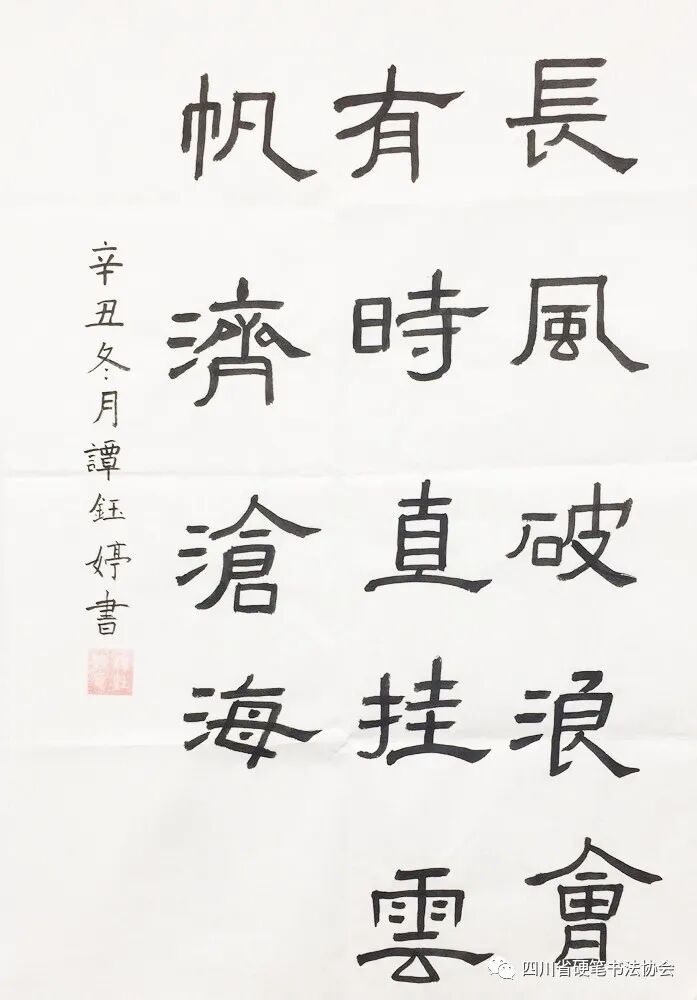 長風破浪會
有時直挂雲
帆濟滄海
辛丑冬月譚鈺婷書
四川省硬笔书法协会